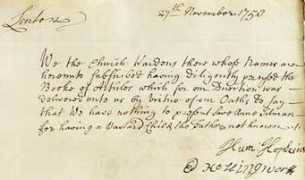 Lenton 27th November 1750
We the Church Wardens there whose Names are
hereunto subscribed having diligently perused the
Books of Articles which for our Direction was
delivered unto us by Virtue of our Oaths do say
that We have nothing to present save Ann
for having a Bastard Child the Father not known
Hum: Hopkins
Hollingworth